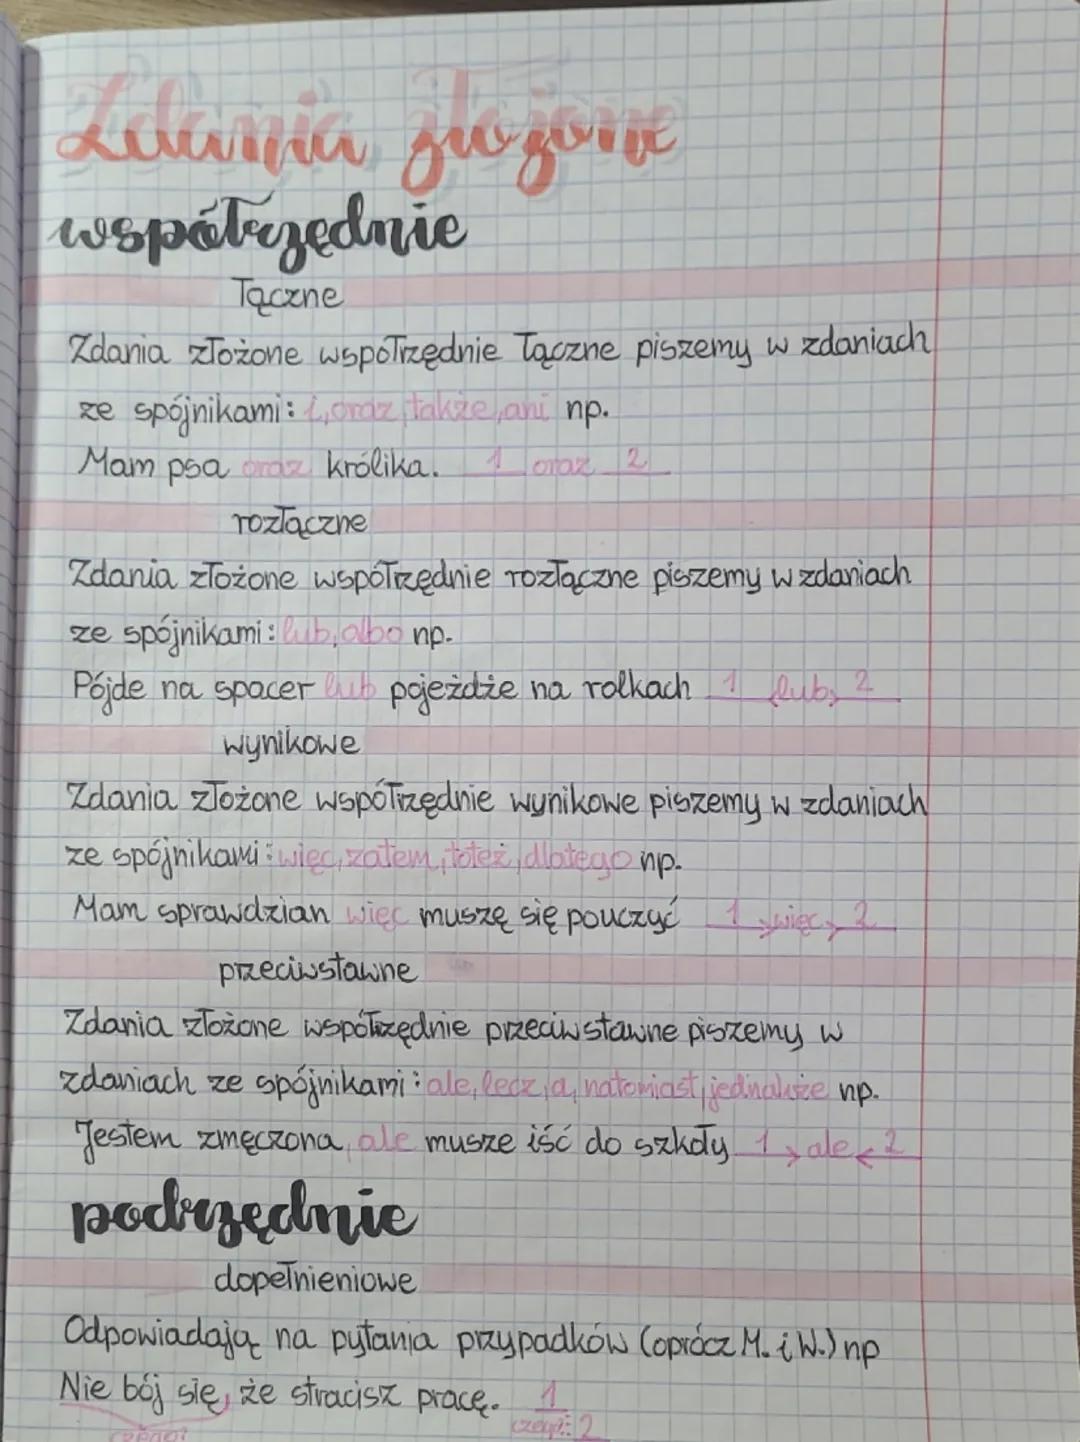 Zdania złożone
współrzędnie
łączne
Zdania złożone współrzędnie łączne piszemy w zdaniach
ze spójnikami: i, oraz, także, ani np.
Mam psa oraz królika. 1 oraz 2
rozłączne
Zdania złożone współrzędnie rozłączne piszemy w zdaniach
ze spójnikami: lub, albo np.
Pójde na spacer lub pojeżdże na rolkach 1 lub 2
wynikowe
Zdania złożone współrzędnie wynikowe piszemy w zdaniach
ze spójnikami: więc, zatem, toteż, dlatego np.
Mam sprawdzian więc muszę się pouczyć 1 > więc > 2
przeciwstawne
Zdania złożone współrzędnie przeciwstawne piszemy w
zdaniach ze spójnikami: ale, lecz, a, natomiast, jednakże np.
Jestem zmęczona, ale musze iść do szkoły 1 > ale < 2
podrzędnie
dopełnieniowe
Odpowiadają na pytania przypadków (oprócz M. i W.) np
Nie bój się, że stracisz pracę. 1
czego? czego? 2